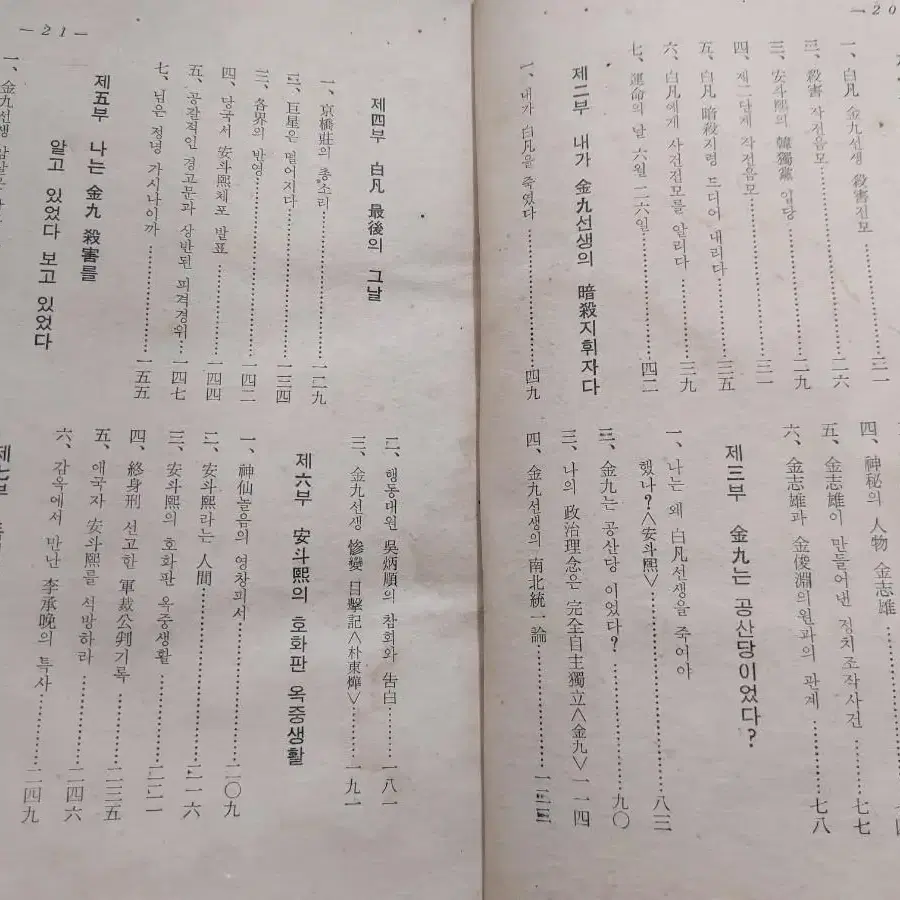 —20
一、白凡 金九선생 殺害전모……二一
二、殺害 작전음모……二六
三、安斗熙의 韓獨黨 입당……二九
四、제二단계 작전음모……三一
五、白凡 暗殺지령 드디어 내리다……三五
六、白凡에게 사건전모를 알리다……三九
七、運命의 날 六월 二六일……四二
제二부 내가 金九선생의 暗殺지휘자다
一、내가 白凡을 죽였다……四九
四、神秘의 人物 金志雄……
五、金志雄이 만들어낸 정치조작사건……七七
六、金志雄과 金俊淵의원과의 관계……七八
제三부 金九는 공산당이었다?
一、나는 왜 白凡선생을 죽여야
했나?〈安斗熙〉……八三
二、金九는 공산당 이었다?……九〇
三、나의 政治理念은 完全自主獨立〈金九〉一一四
四、金九선생의 南北統一論……一二三
—21—
제四부 白凡 最後의 그날
一、京橋莊의 총소리……一二九
二、巨星은 떨어지다……一三四
三、各界의 반영……一四二
四、당국서 安斗熙체포 발표……一四四
五、공갈적인 경고문과 상반된 피격경위…一四七
七、님은 정녕 가시나이까……一五五
제五부 나는 金九 殺害를
알고 있었다 보고 있었다
一、金九선생
二、행동대원 吳炳順의 참회와 告白……一八一
三、金九선생 慘變 目擊記〈朴東燁〉……一九一
제六부 安斗熙의 호화판 옥중생활
一、神仙놀음의 영창피서……二〇九
二、安斗熙라는 人間……二一六
三、安斗熙의 호화판 옥중생활……二二一
四、終身刑 선고한 軍裁公判기록……二三五
五、애국자 安斗熙를 석방하라……二四六
六、감옥에서 만난 李承晩의 특사……二四九
제七부